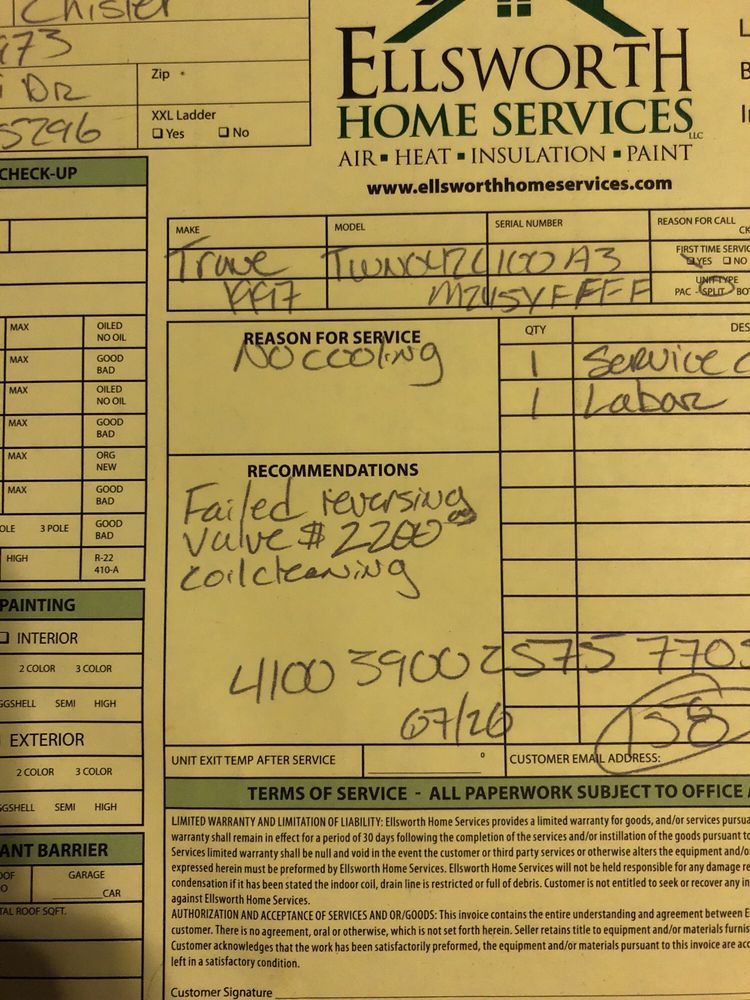 Chister
973
Dr
5296
Zip
XXL Ladder
Yes No
ELLSWORTH
HOME SERVICES LLC
AIR ▪ HEAT ▪ INSULATION ▪ PAINT
www.ellsworthhomeservices.com
CHECK-UP
MAKE MODEL SERIAL NUMBER REASON FOR CALL
FIRST TIME SERVIC
YES NO
UNIT TYPE
PAC - SPLIT BO
MAX OILED
NO OIL
MAX GOOD
BAD
MAX OILED
NO OIL
MAX GOOD
BAD
MAX ORG
NEW
MAX GOOD
BAD
OLE 3 POLE GOOD
BAD
HIGH R-22
410-A
REASON FOR SERVICE
No cooling
QTY DES
1 Service c
1 Labor
RECOMMENDATIONS
Failed reversing
Valve $ 2200
coil cleaning
UNIT EXIT TEMP AFTER SERVICE °
CUSTOMER EMAIL ADDRESS:
PAINTING
INTERIOR
2 COLOR 3 COLOR
GGSHELL SEMI HIGH
EXTERIOR
2 COLOR 3 COLOR
GGSHELL SEMI HIGH
ANT BARRIER
OOF GARAGE
O CAR
TAL ROOF SQFT.
TERMS OF SERVICE - ALL PAPERWORK SUBJECT TO OFFICE A
LIMITED WARRANTY AND LIMITATION OF LIABILITY: Ellsworth Home Services provides a limited warranty for goods, and/or services pursua
warranty shall remain in effect for a period of 30 days following the completion of the services and/or instillation of the goods pursuant to
Services limited warranty shall be null and void in the event the customer or third party services or otherwise alters the equipment and/o
expressed herein must be preformed by Ellsworth Home Services. Ellsworth Home Services will not be held responsible for any damage re
condensation if it has been stated the indoor coil, drain line is restricted or full of debris. Customer is not entitled to seek or recover any in
against Ellsworth Home Services.
AUTHORIZATION AND ACCEPTANCE OF SERVICES AND OR/GOODS: This invoice contains the entire understanding and agreement between E
customer. There is no agreement, oral or otherwise, which is not set forth herein. Seller retains title to equipment and/or materials furnis
Customer acknowledges that the work has been satisfactorily preformed, the equipment and/or materials pursuant to this invoice are acc
left in a satisfactory condition.
Customer Signature